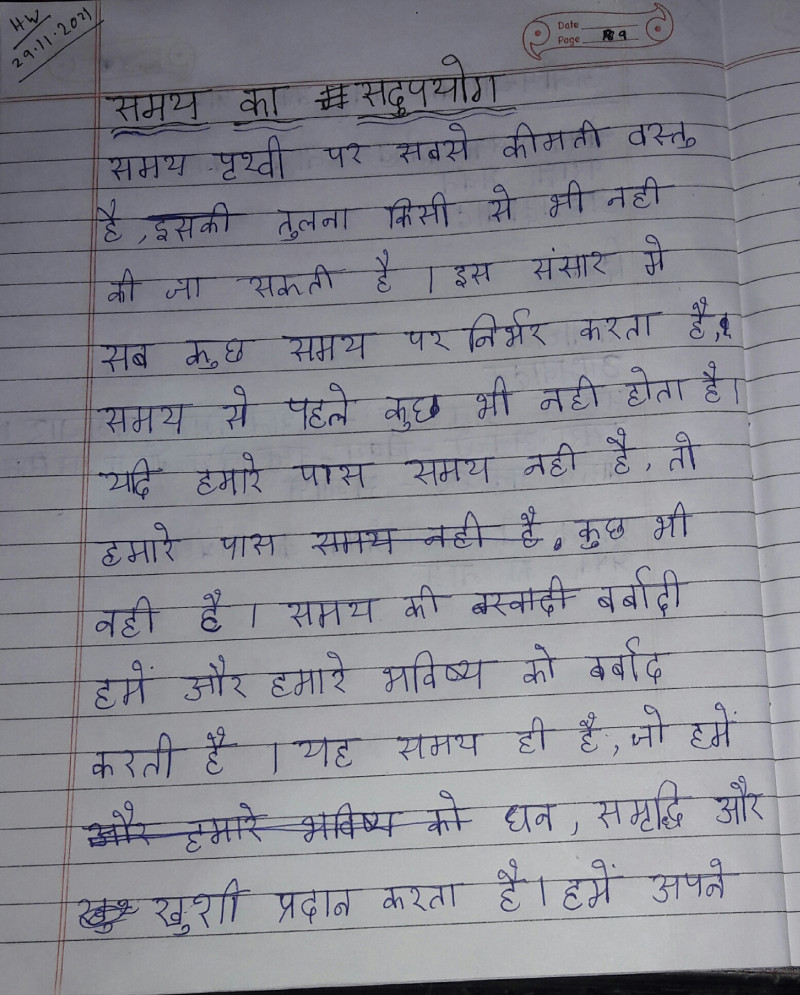 HW
29.11.2021
Date
Page 89
समय का सदुपयोग
समय पृथ्वी पर सबसे कीमती वस्तु
है, इसकी तुलना किसी से भी नही
की जा सकती है । इस संसार मे
सब कुछ समय पर निर्भर करता है,
समय से पहले कुछ भी नही होता है।
यदि हमारे पास समय नही है, तो
हमारे पास समय नही है, कुछ भी
नही है । समय की बरवादी बर्बादी
हमें और हमारे भविष्य को बर्बाद
करती है । यह समय ही है, जो हमें
और हमारे भविष्य को धन, समृद्धि और
खुशी प्रदान करता है। हमें अपने